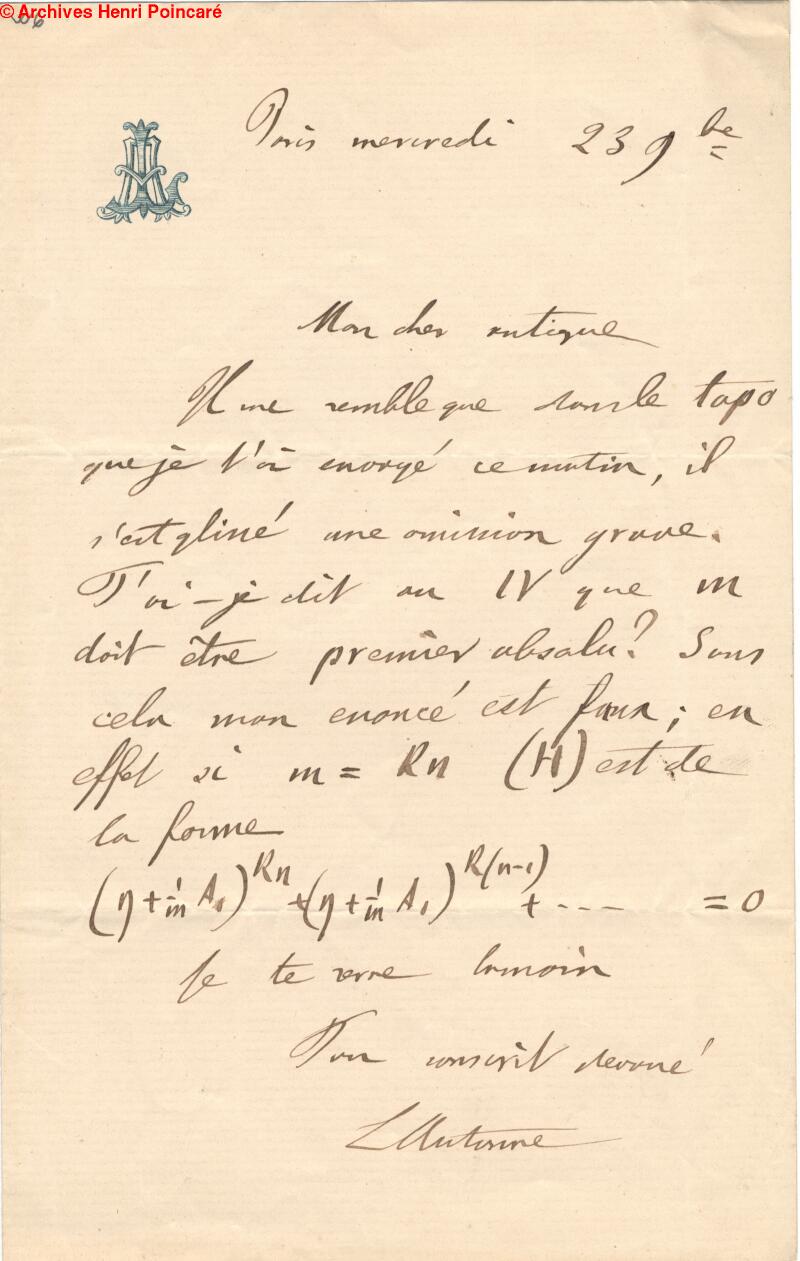 © Archives Henri Poincaré
Paris mercredi 23 9be
Mon cher antique
Il me semble que dans le tapo
que je t'ai envoyé ce matin, il
s'est glissé une omission grave.
T'ai-je dit au IV que m
doit être premier absolu? Sans
cela mon enoncé est faux; en
effet si m = Rn (H) est de
la forme
(η + 1/m A₁)^Rn + (η + 1/m A₁)^R(n-1) + ---- = 0
Je te serre la main
Ton conscrit devoué
L Autonne